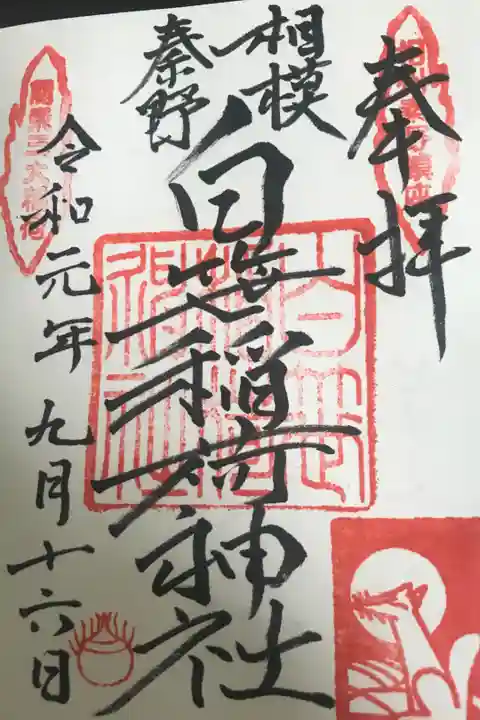 奉拝
相模
秦野
白笹稲荷神社
令和元年九月十六日
関東三大稲荷